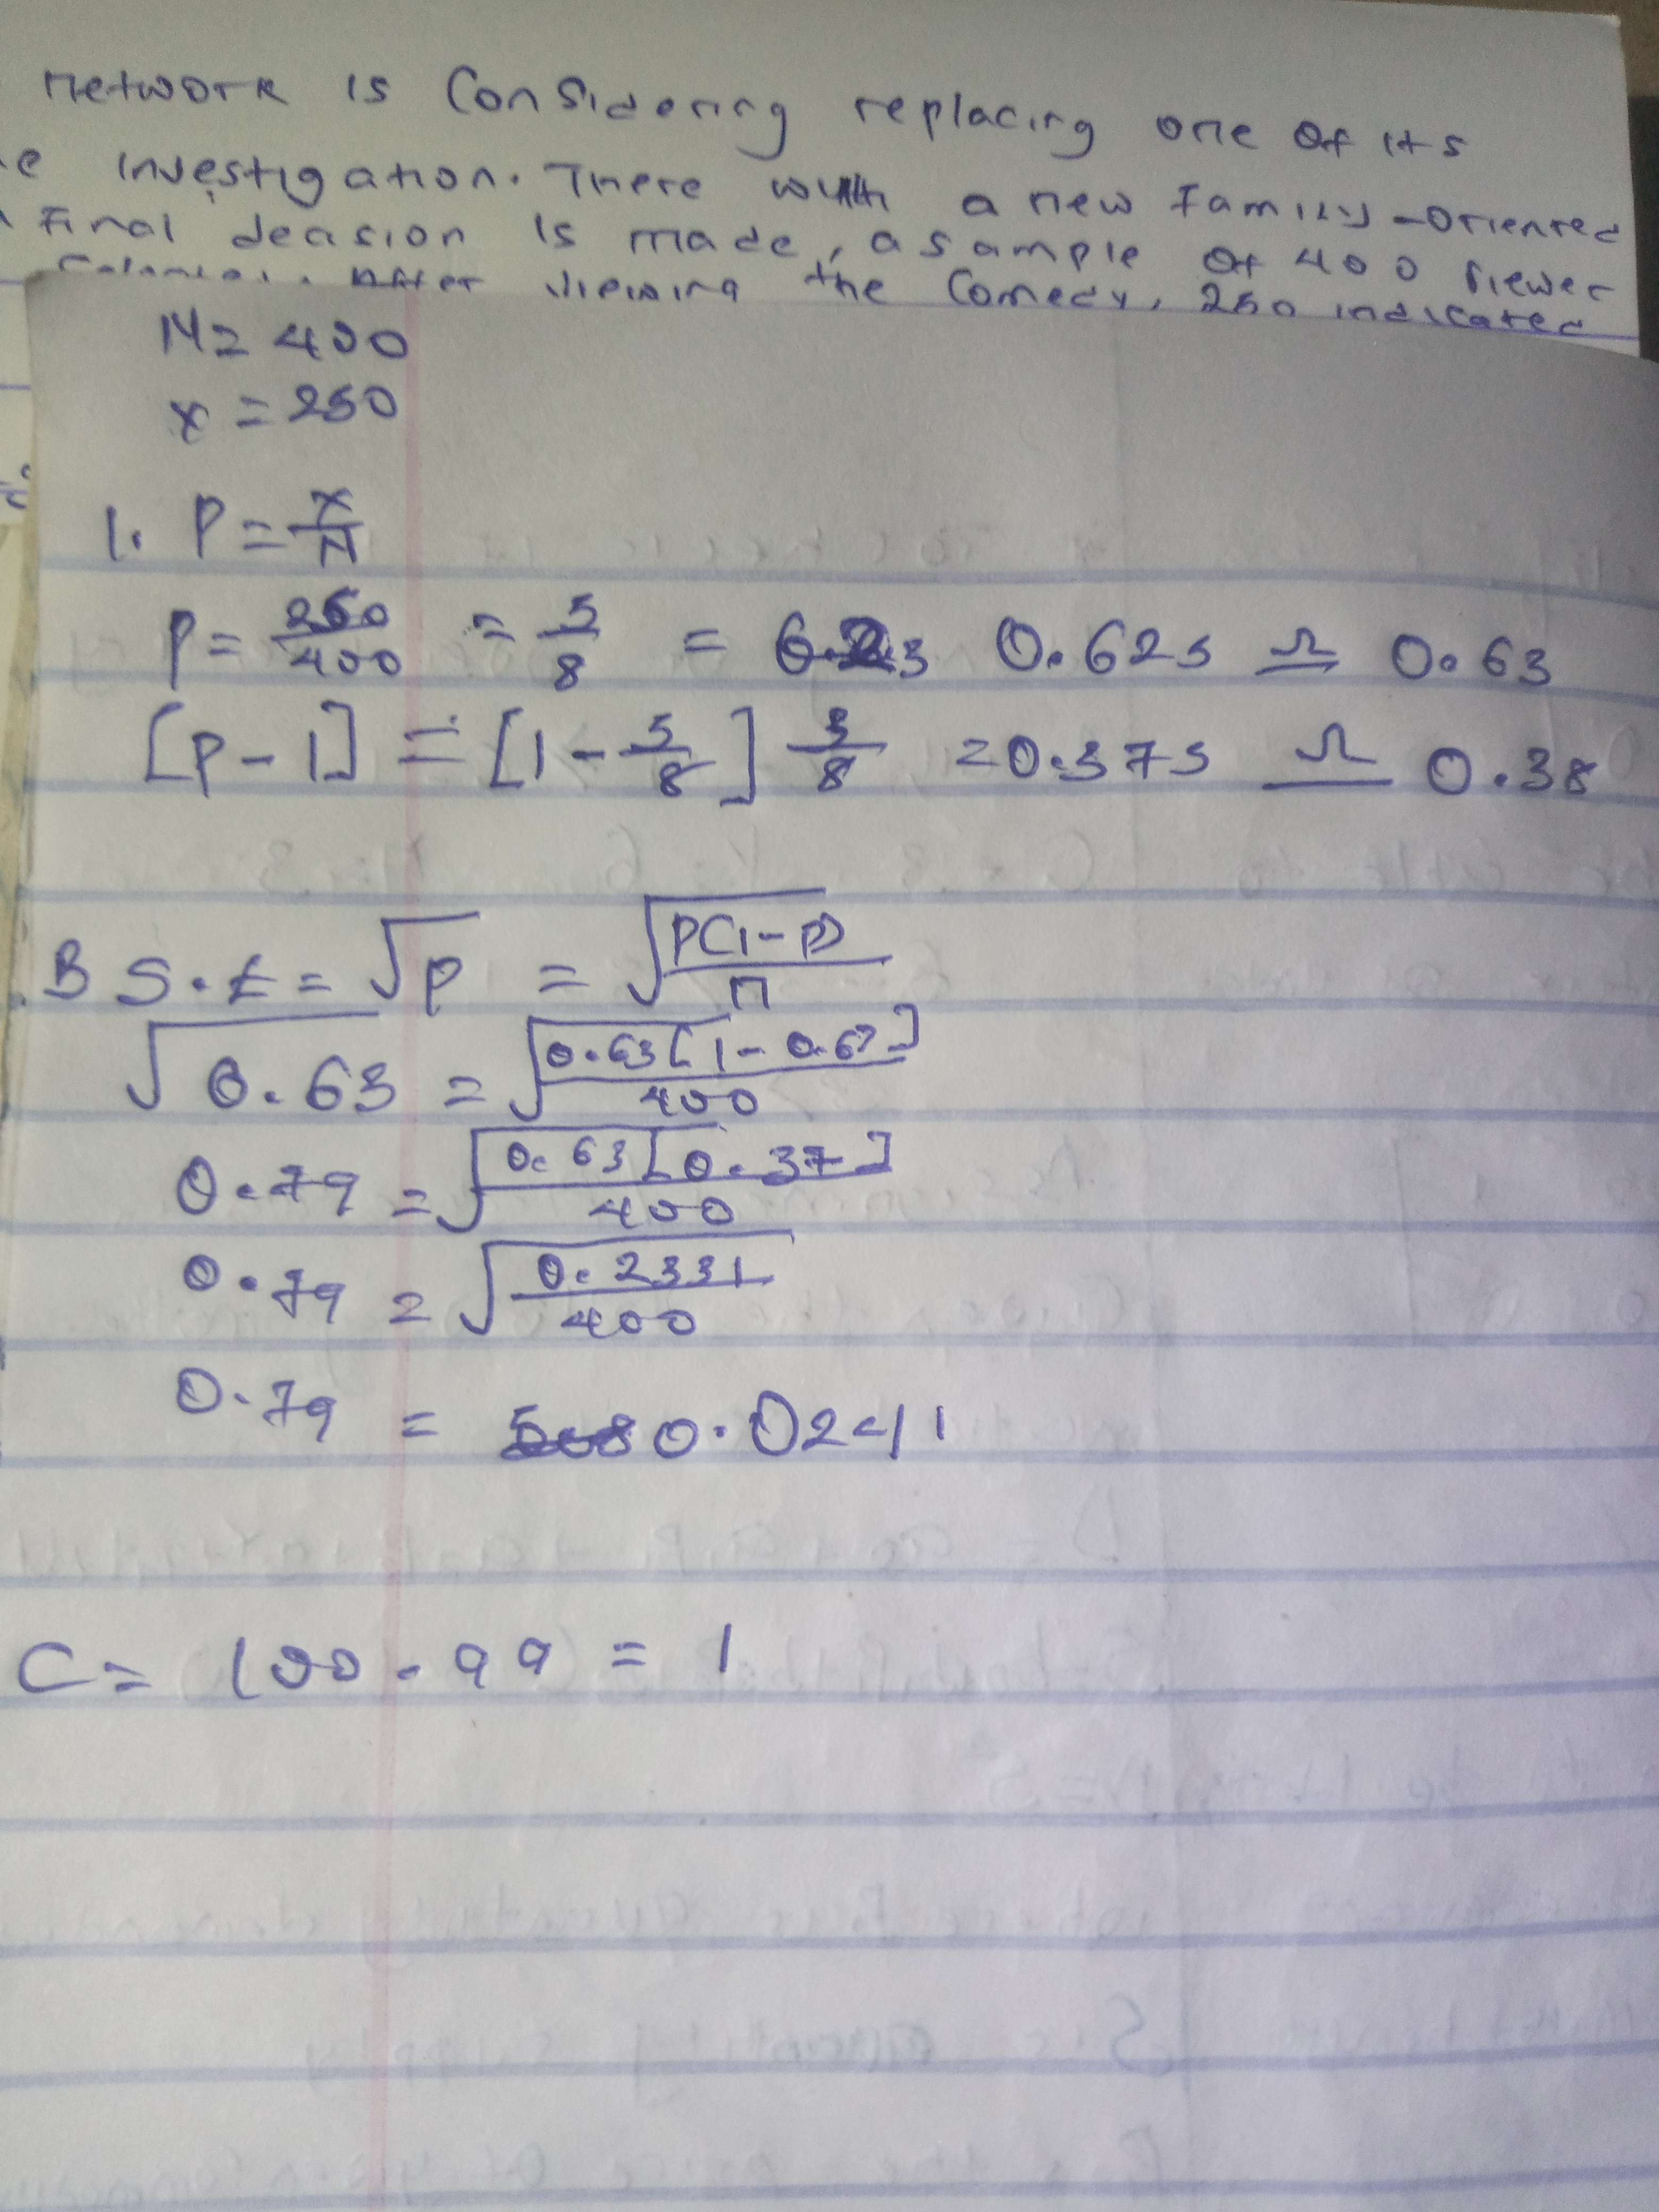 network is Considering replacing one of its
e investigation. There with a new family-oriented
Final decision is made, a sample of 400 viewer
After viewing the Comedy, 250 indicated
N = 400
x = 250
1. P = x/n
P = 250/400 = 5/8 = 0.625 ≏ 0.63
[P-1] = [1-5/8] 3/8 = 0.375 ≏ 0.38
B S.E = √P = √(P(1-P)/n)
√0.63 = √(0.63[1-0.63]/400)
0.79 = √(0.63[0.37]/400)
0.79 = √(0.2331/400)
0.79 = 0.0241
C = 100 - 99 = 1